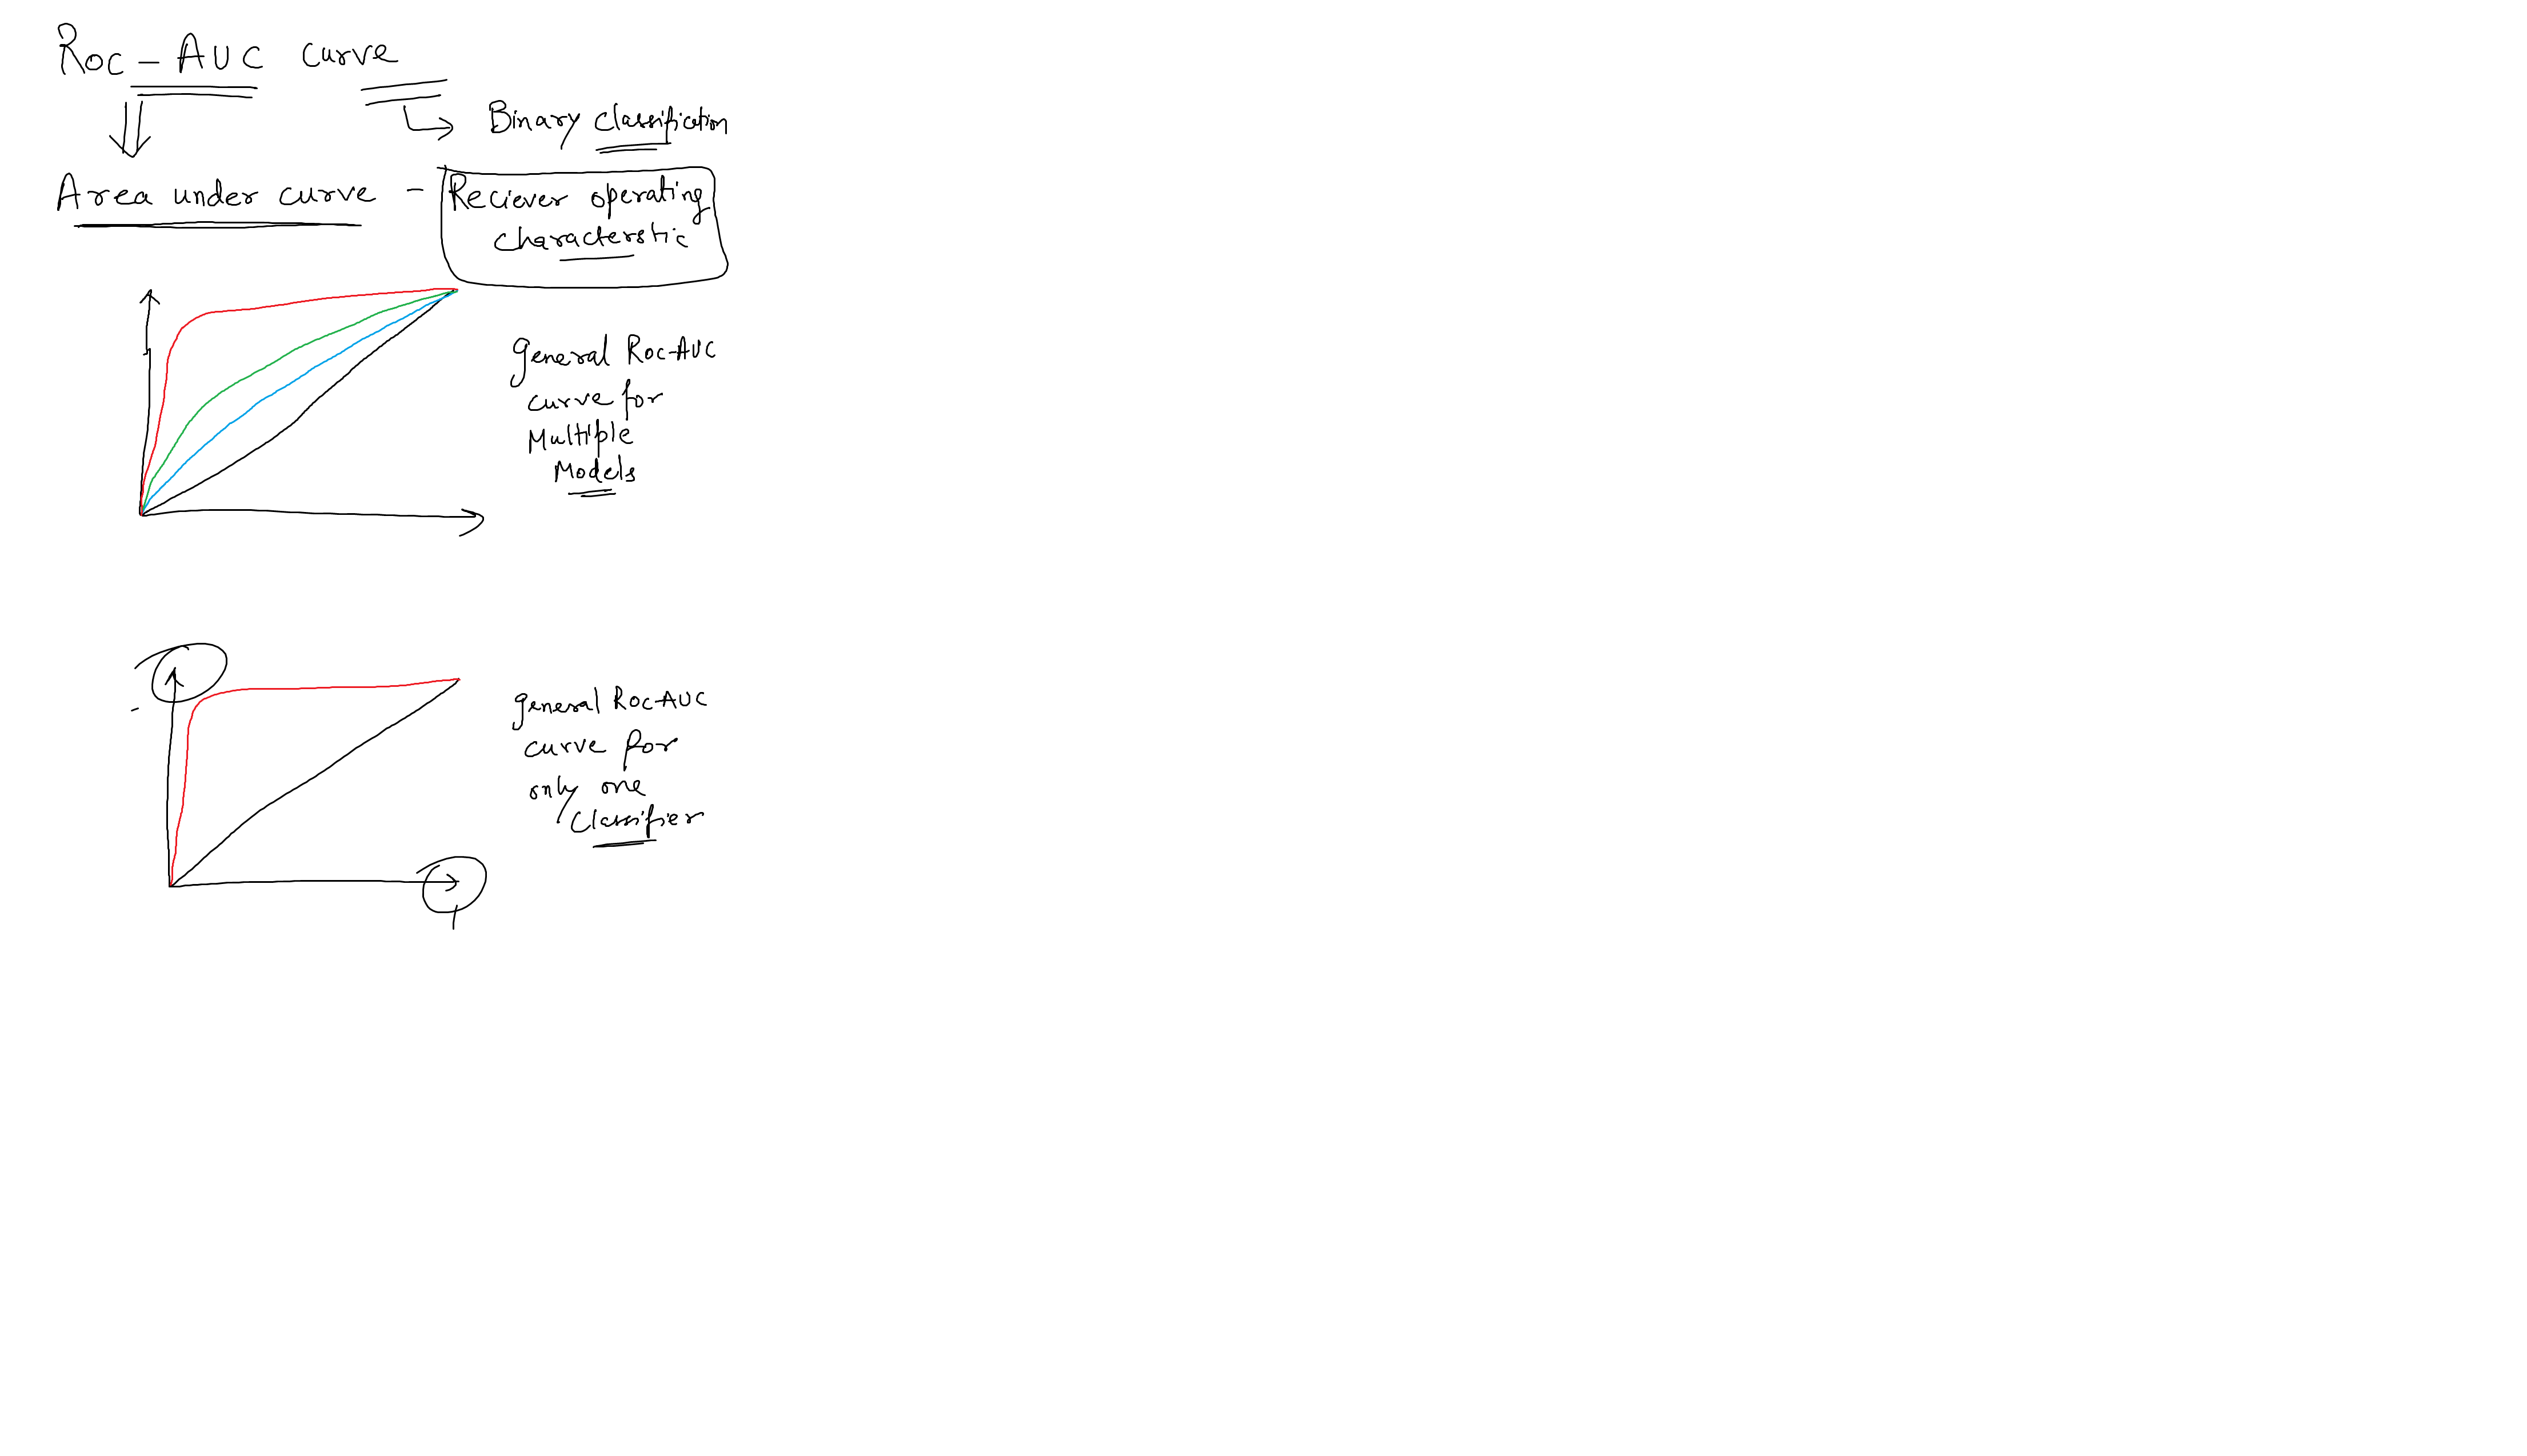 Roc - AUC curve
Binary classification
Area under curve - Reciever operating
characterstic
general Roc-AUC
curve for
Multiple
Models
general Roc-AUC
curve for
only one
classifier